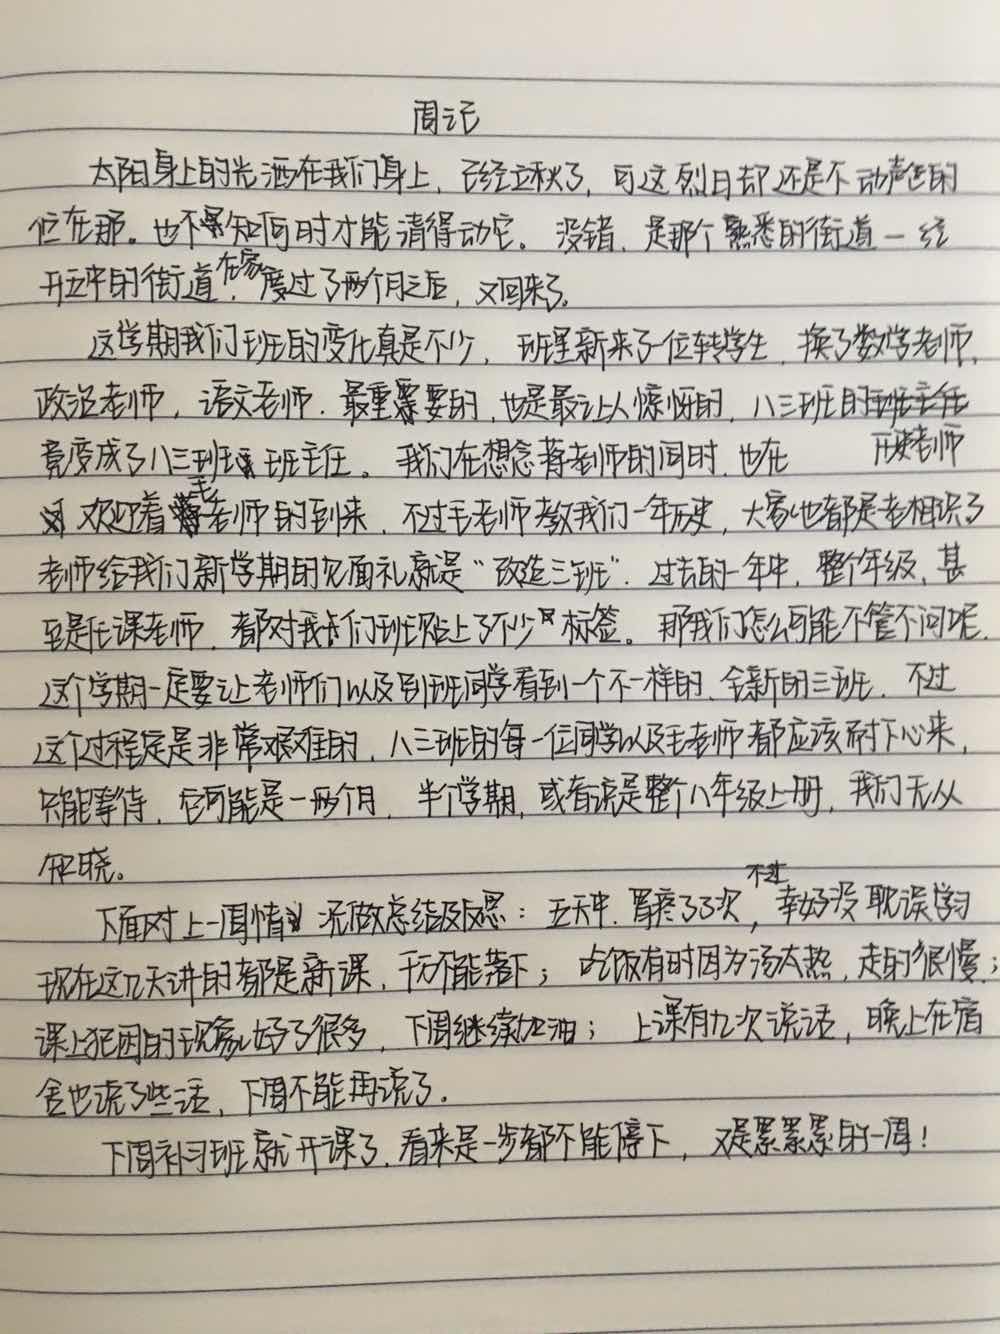 周记
太阳身上的光洒在我们身上，已经立秋了，可这烈日却还是不动声色的
伫在那。也不知何时才能请得动它。没错，是那个熟悉的街道一经
开五中的街道，在家度过了两个月之后，又回来了。
这学期我们班的变化真是不少，班里新来了一位转学生，换了数学老师，
政治老师，语文老师．最重要的，也是最让人惊呀的，八三班的班主任
竟变成了八三班班主任。我们在想念蒋老师的同时，也在 历史老师
欢迎着毛老师的到来，不过毛老师教我们一年历史，大家也都是老相识了
老师给我们新学期的见面礼就是“改造三班”．过去的一年中，整个年级，甚
至是任课老师，都对我们班贴上了不少标签。那我们怎么可能不管不问呢，
这个学期一定要让老师们以及别班同学看到一个不一样的、全新的三班，不过
这个过程定是非常艰难的，八三班的每一位同学以及毛老师都应该耐下心来，
只能等待，它可能是一两个月，半个学期，或者说是整个八年级上册，我们无从
知晓。
下面对上一周情况做总结及反思：五天中，胃疼了3次，不过幸好没耽误学习
现在这几天讲的都是新课，千万不能落下；吃饭有时因为汤太热，走的很慢；
课上犯困的现象好了很多，下周继续加油；上课有九次说话，晚上在宿
舍也说了些话，下周不能再说了．
下周补习班就开课了，看来是一步都不能停下，又是累累累的一周！